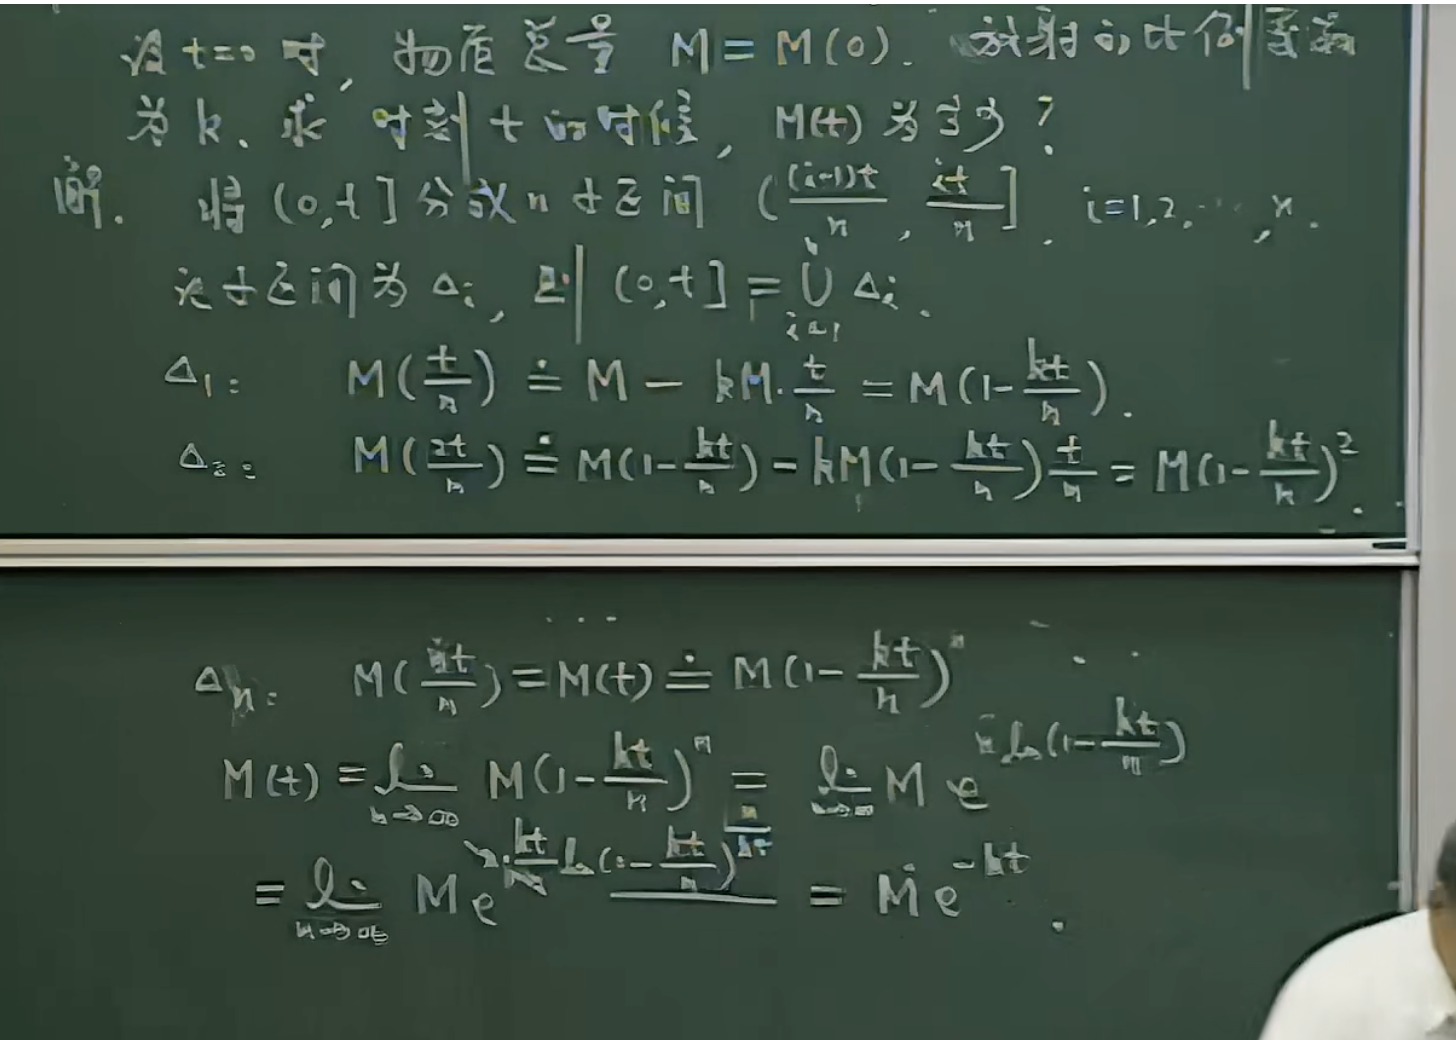 设 t=0 时, 物质总量 M = M(0). 放射的比例系数
为 k. 求 时刻 t 的时候, M(t) 为多少?
解. 将 (0,t] 分成 n 个区间 ((i-1)t/n, it/n], i=1,2,⋯,n.
记个区间为 Δi, 则 (0,t] = ⋃_{i=1}^{n} Δi.
Δ1: M(t/n) ≐ M − kM·t/n = M(1−kt/n).
Δ2: M(2t/n) ≐ M(1−kt/n) − kM(1−kt/n)t/n = M(1−kt/n)^2.
⋯
Δn: M(nt/n) = M(t) ≐ M(1−kt/n)^n
M(t) = lim_{n→∞} M(1−kt/n)^n = lim_{n→∞} M e^{n ln(1−kt/n)}
= lim_{n→∞} M e^{n·kt/n ln(1−kt/n)^{n/kt}} = M e^{−kt}.